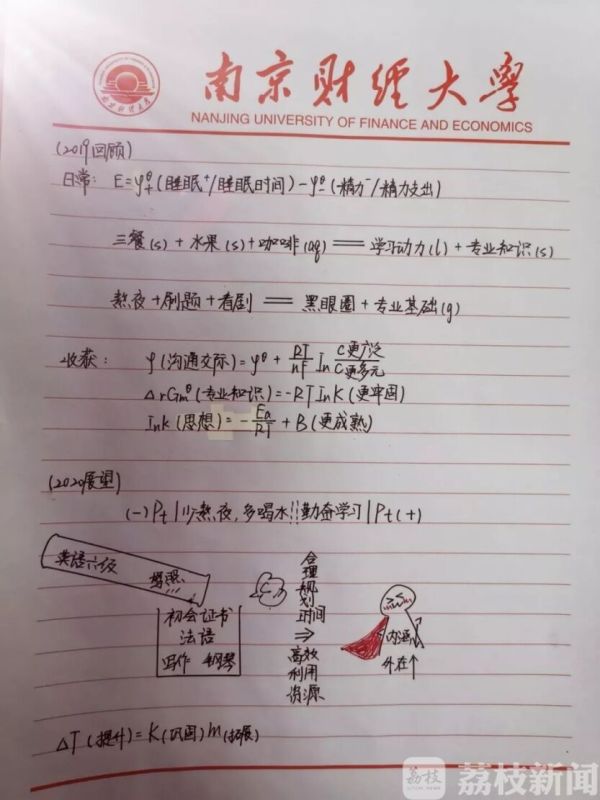 南京财经大学
NANJING UNIVERSITY OF FINANCE AND ECONOMICS
(2019回顾)
日常: E=φ₊^θ(睡眠⁺/睡眠时间)-φ₋^θ(精力⁻/精力支出)
三餐(s)+水果(s)+咖啡(aq)══学习动力(l)+专业知识(s)
熬夜+刷题+看剧══黑眼圈+专业基础(g)
收获: φ(沟通交际)=φ^θ+RT/nF ln C更广泛/C更多元
ΔrGm^θ(专业知识)=-RTlnK(更牢固)
lnk(思想)=-Ea/RT+B(更成熟)
(2020展望)
(-)Pt|少熬夜,多喝水||勤奋学习|Pt(+)
英语六级 驾照
初会证书
法语
写作 钢琴
合理规划时间
⇒
高效利用资源
内涵↑
外在↑
ΔT(提升)=K(巩固)m(拓展)
荔枝
荔枝新闻